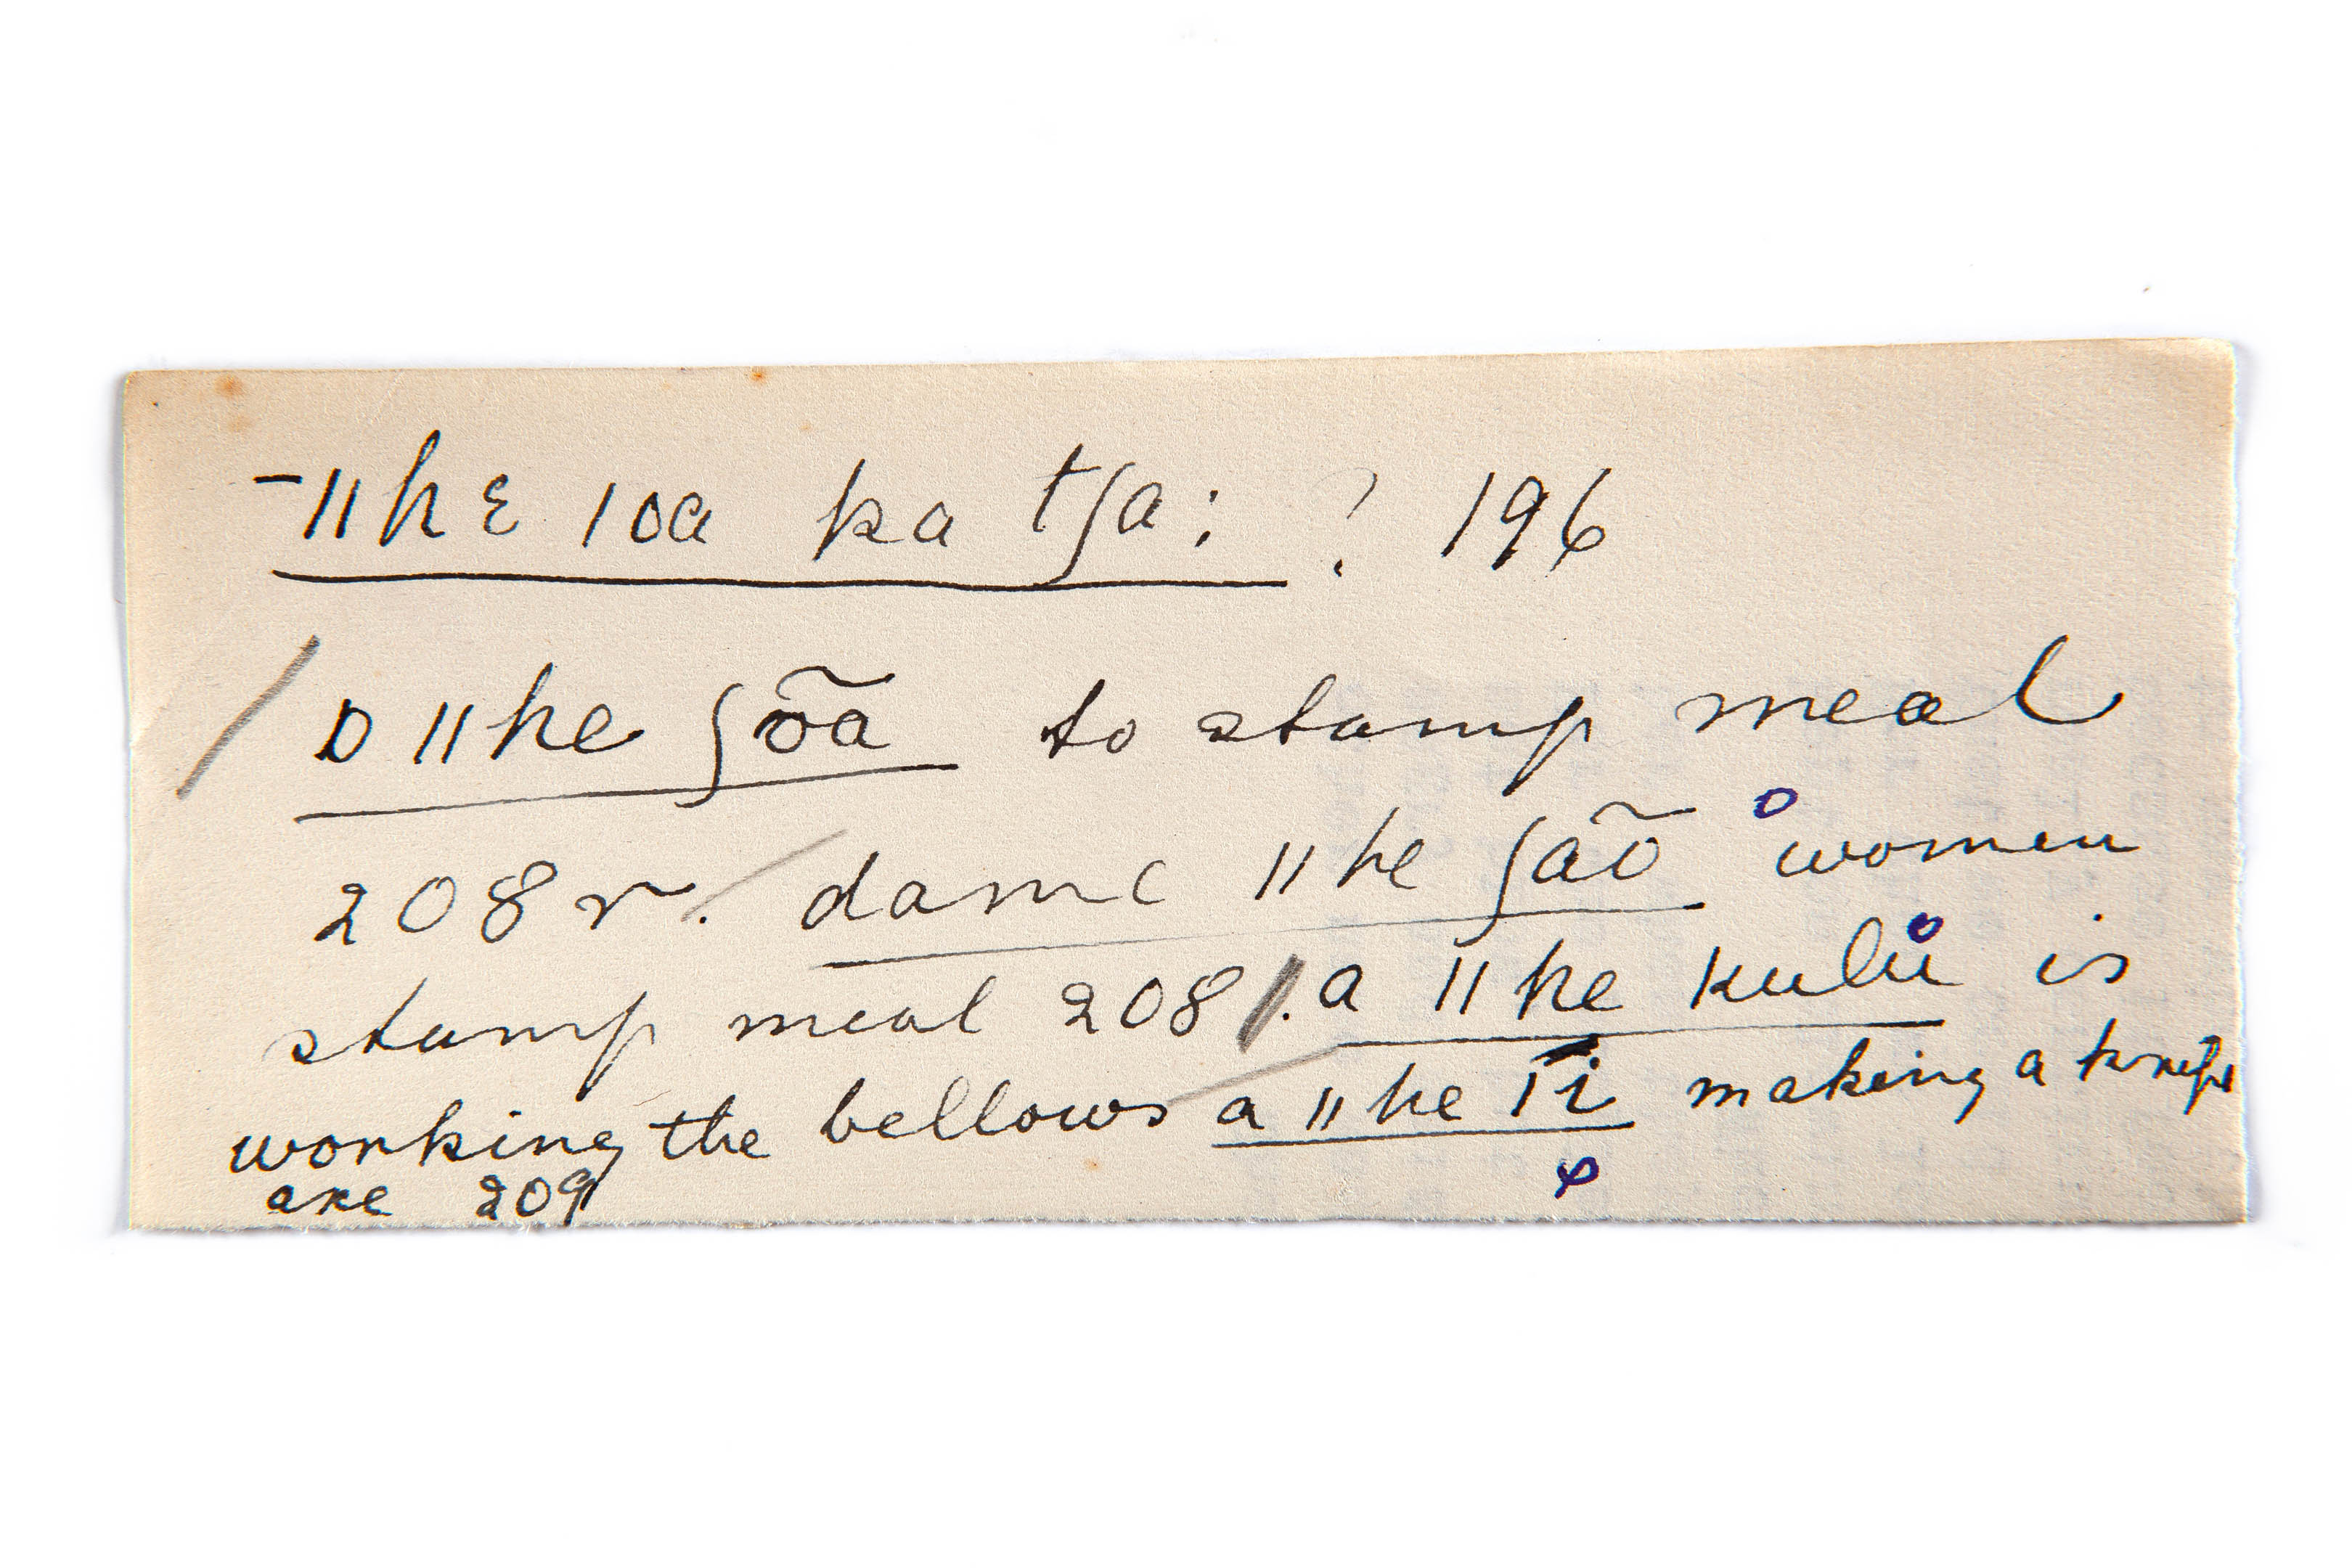 -ǁhɛ ǀoa ka tʃa: ? 196
o ǁhe ʃõã to stamp meal
208 r. dame ǁhe ʃãõ women
stamp meal 208. a ǁhe kulů is
working the bellows a ǁhe Ti making a knife
axe 209